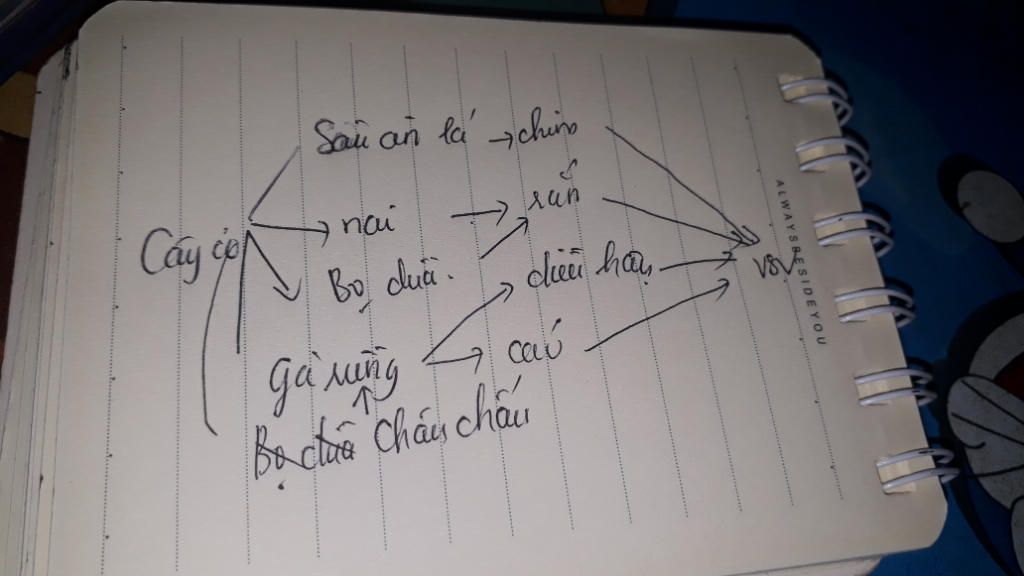 Sâu ăn lá → chim
nai → rắn
Cây cỏ
Bọ dừa. diều hâu
VSV
Gà rừng → cáo
Bọ dừa Châu chấu
ALWAYS BESIDE YOU